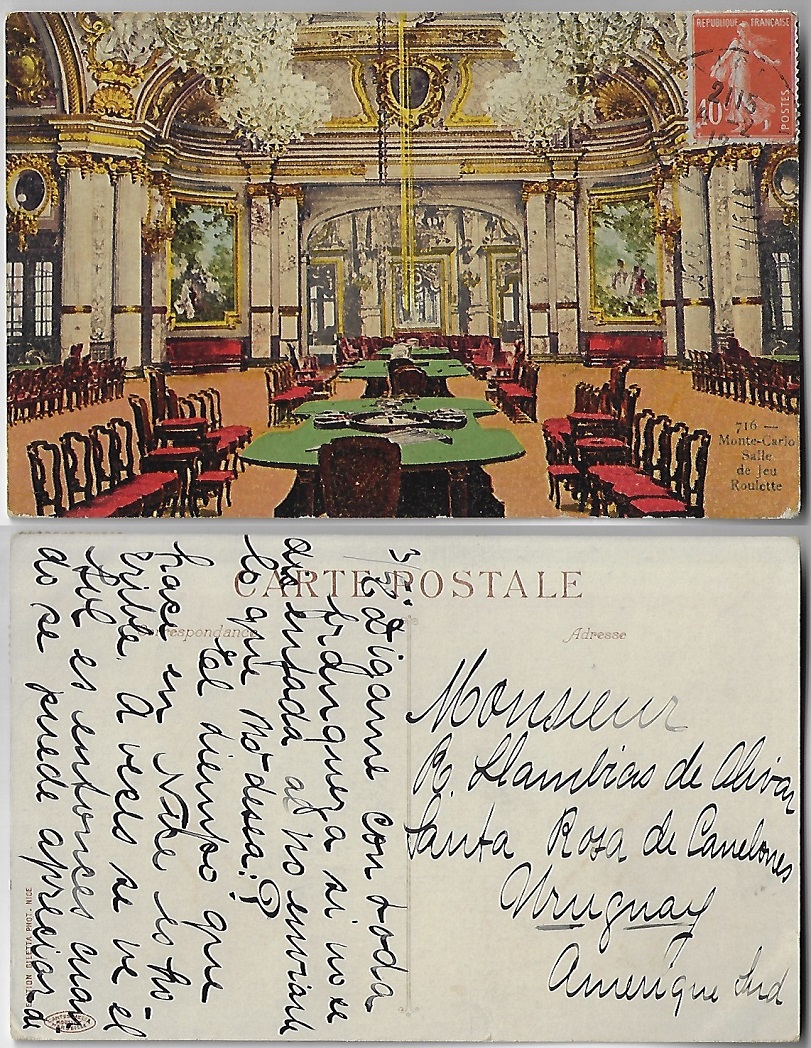 REPUBLIQUE FRANÇAISE
10
POSTES
716 —
Monte-Carlo
Salle
de Jeu
Roulette
CARTE POSTALE
Correspondance
Adresse
3/5º
Digame con toda
franqueza si no se
enfada al no enviarle
lo que no desea?
El tiempo que
hace en Niza es ho-
rrible. A veces se ve el
sol es entonces cuan-
do se puede apreciar
Monsieur
R. Llambias de Olivar
Santa Rosa de Canelones
Uruguay
Amerique Sud
EDITION GILETTA PHOT. NICE